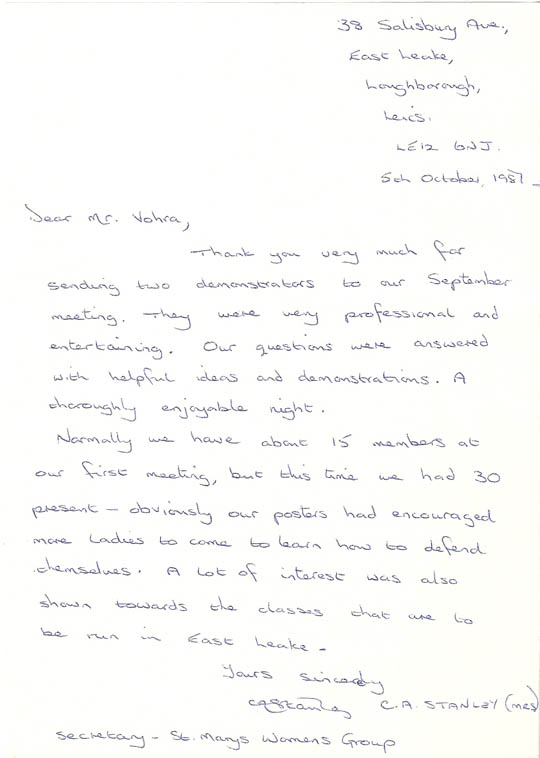 38 Salisbury Ave.,
East Leake,
Loughborough,
Leics.
LE12 6NJ.
5th October, 1987
Dear Mr. Vohra,
Thank you very much for
sending two demonstrators to our September
meeting. They were very professional and
entertaining. Our questions were answered
with helpful ideas and demonstrations. A
thoroughly enjoyable night.
Normally we have about 15 members at
our first meeting, but this time we had 30
present – obviously our posters had encouraged
more Ladies to come to learn how to defend
themselves. A lot of interest was also
shown towards the classes that are to
be run in East Leake.
Yours sincerely
CAStanley C.A. STANLEY (MRS)
Secretary – St. Marys Womens Group